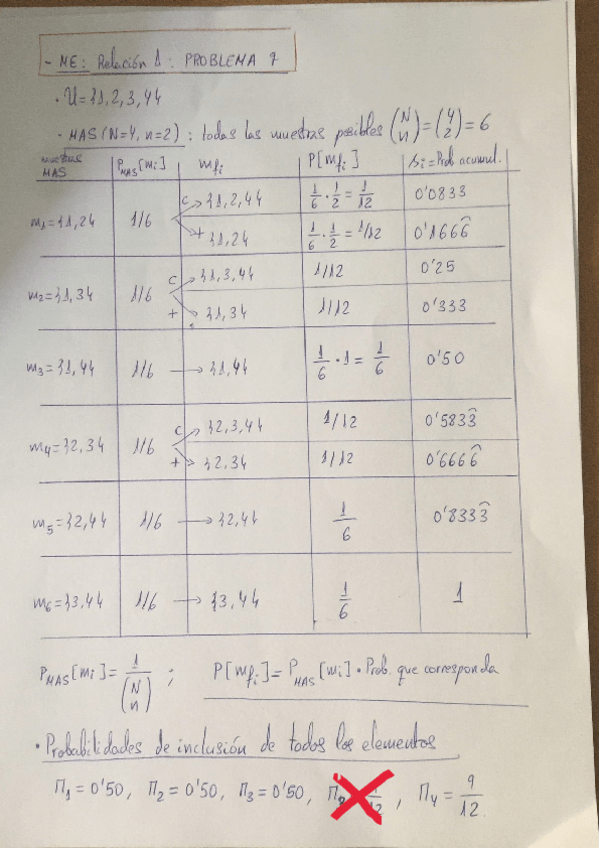 - ME: Relación 1: PROBLEMA 7
• U={1,2,3,4}
• MAS(N=4, n=2): todas las muestras posibles (N n)=(4 2)=6
muestras MAS P_MAS[mi] mfi P[mfi] si=Prob acumul.
m1={1,2} 1/6 c {1,2,4} 1/6 · 1/2 = 1/12 0'0833
+ {1,2} 1/6 · 1/2 = 1/12 0'1666
m2={1,3} 1/6 c {1,3,4} 1/12 0'25
+ {1,3} 1/12 0'333
m3={1,4} 1/6 → {1,4} 1/6 · 1 = 1/6 0'50
m4={2,3} 1/6 c {2,3,4} 1/12 0'5833
+ {2,3} 1/12 0'6666
m5={2,4} 1/6 → {2,4} 1/6 0'8333
m6={3,4} 1/6 → {3,4} 1/6 1
P_MAS[mi] = 1/(N n) ; P[mfi] = P_MAS[mi] · Prob. que corresponda
• Probabilidades de inclusión de todos los elementos
Π1 = 0'50, Π2 = 0'50, Π3 = 0'50, Π4 = 9/12